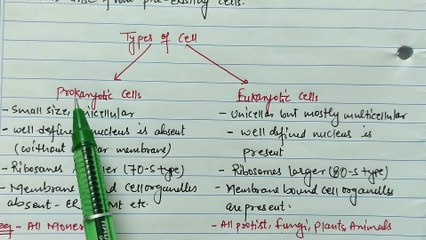 from pre-existing cells.
Types of Cell
Prokaryotic cells
- Small size, unicellular
- well-defined nucleus is absent
(without membrane)
- Ribosomes (70-S type)
- Membrane bound cell organelles
absent - etc.
- All
Eukaryotic cells
- Unicellar but mostly multicellular
- well defined nucleus is
present
- Ribosomes larger (80-S type)
- Membrane bound cell organelles
are present.
- All protist, fungi, plants, Animals